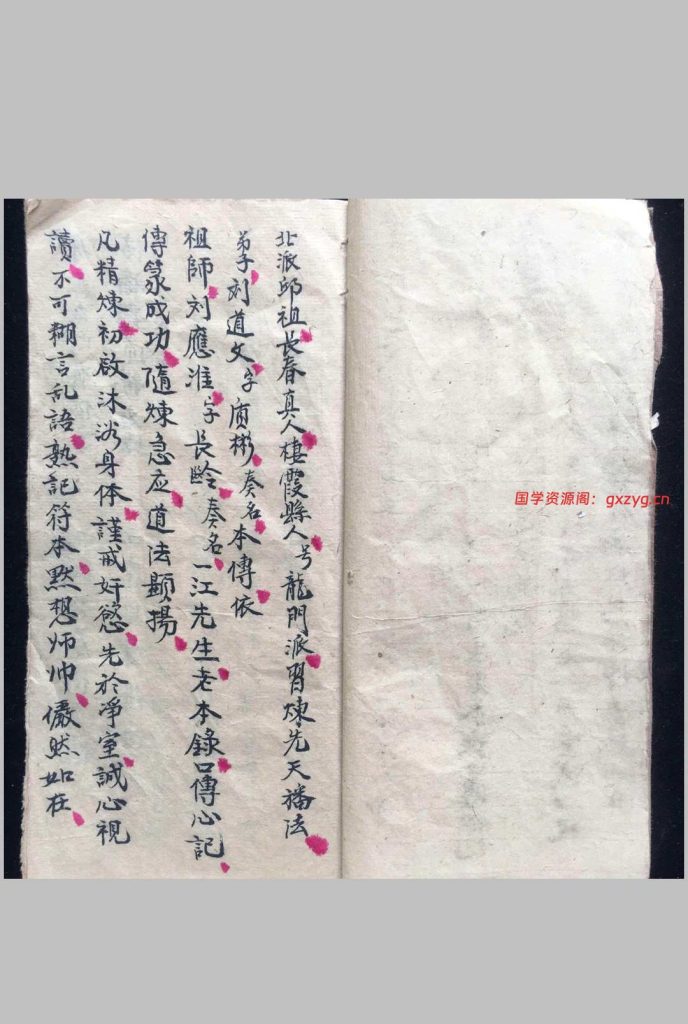 北派邱祖長春真人棲霞縣人号龍門派習煉先天播法
弟子刘道文字质彬奏名本傳依
祖師刘應淮字長齡奏名一江先生老本錄口傳心記
傳篆成功隨煉急应道法顯揚
凡精煉初啟沐浴身体謹戒奸慾先於淨室誠心視
讀不可糊言乱語熟記符本默想师帅儼然如在
国学资源阁：gxzyg.cn